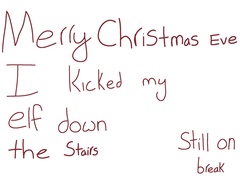 Merry Christmas Eve
I Kicked my
elf down
the Stairs
Still on
break